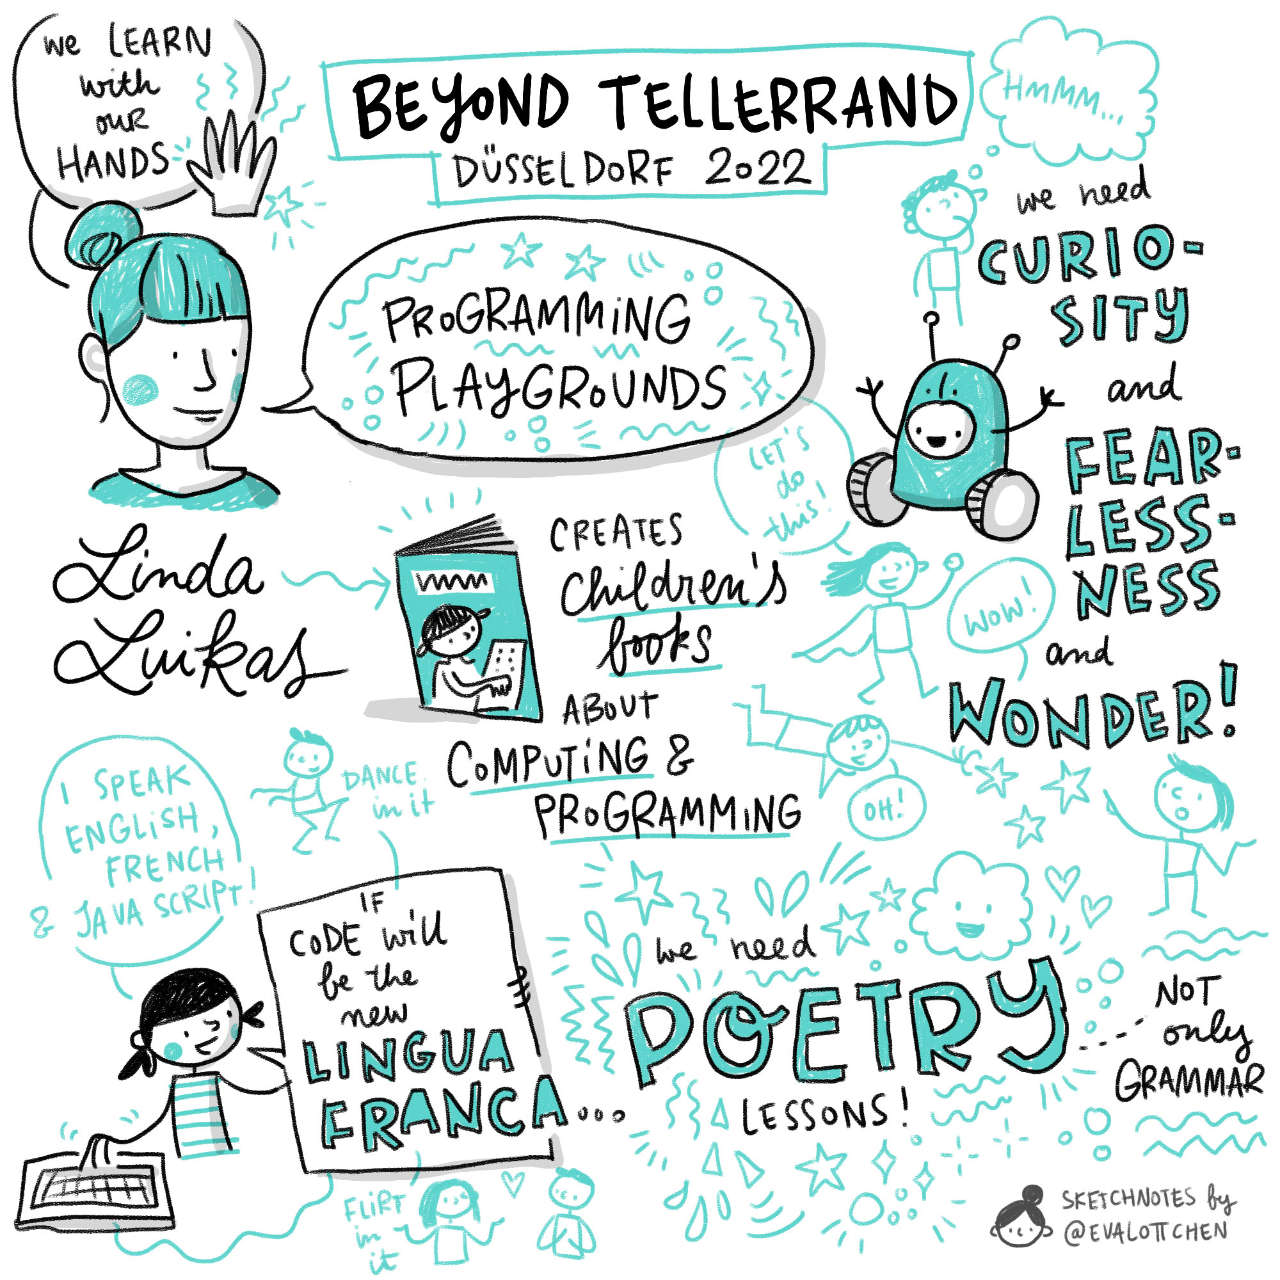 We LEARN
with
our
HANDS
BEYOND TELLERRAND
DÜSSELDORF 2022
HMMM...
PROGRAMMiNG
PLAYGROUNDS
we need
CURIO-
SITY
and
FEAR-
LESS-
NESS
and
WONDER!
LET'S
do
this!
WOW!
OH!
Linda
Luikas
CREATES
children's
books
ABOUT
COMPUTiNG &
PROGRAMMiNG
I SPEAK
ENGLiSH,
FRENCH
& JAVA SCRIPT!
DANCE
in it
IF
CODE will
be the
new
LINGUA
FRANCA...
FLiRT
in
it
we need
POETRY
LESSONS!
NOT
only
GRAMMAR
SKETCHNOTES by
@EVALOTTCHEN